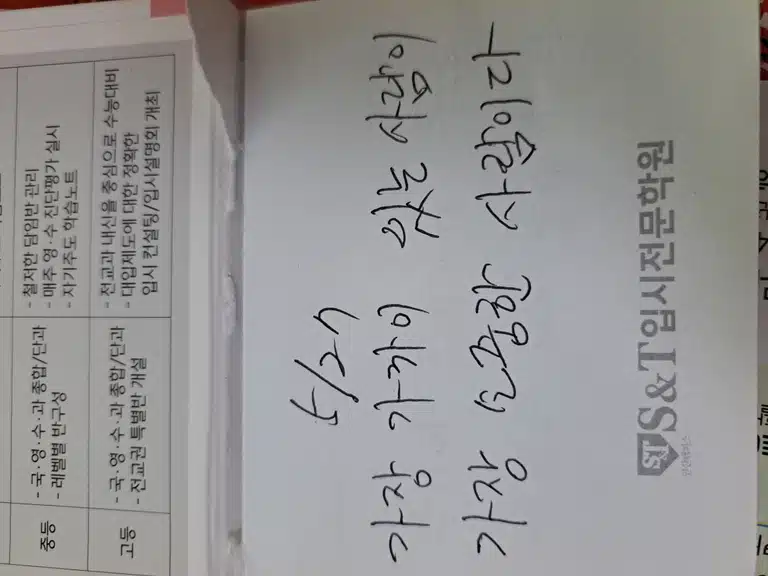 중등
- 국·영·수·과 종합/단과
- 레벨별 반구성
- 철저한 담임반 관리
- 매주 영·수 진단평가 실시
- 자기주도 학습노트
고등
- 국·영·수·과 종합/단과
- 전교권 특별반 개설
- 전교과 내신을 중심으로 수능대비
- 대입제도에 대한 정확한
입시 컨설팅/입시설명회 개최
5/27
가장 가까이 있는 사람이
가장 소중한 사람이다
ST S&T입시전문학원